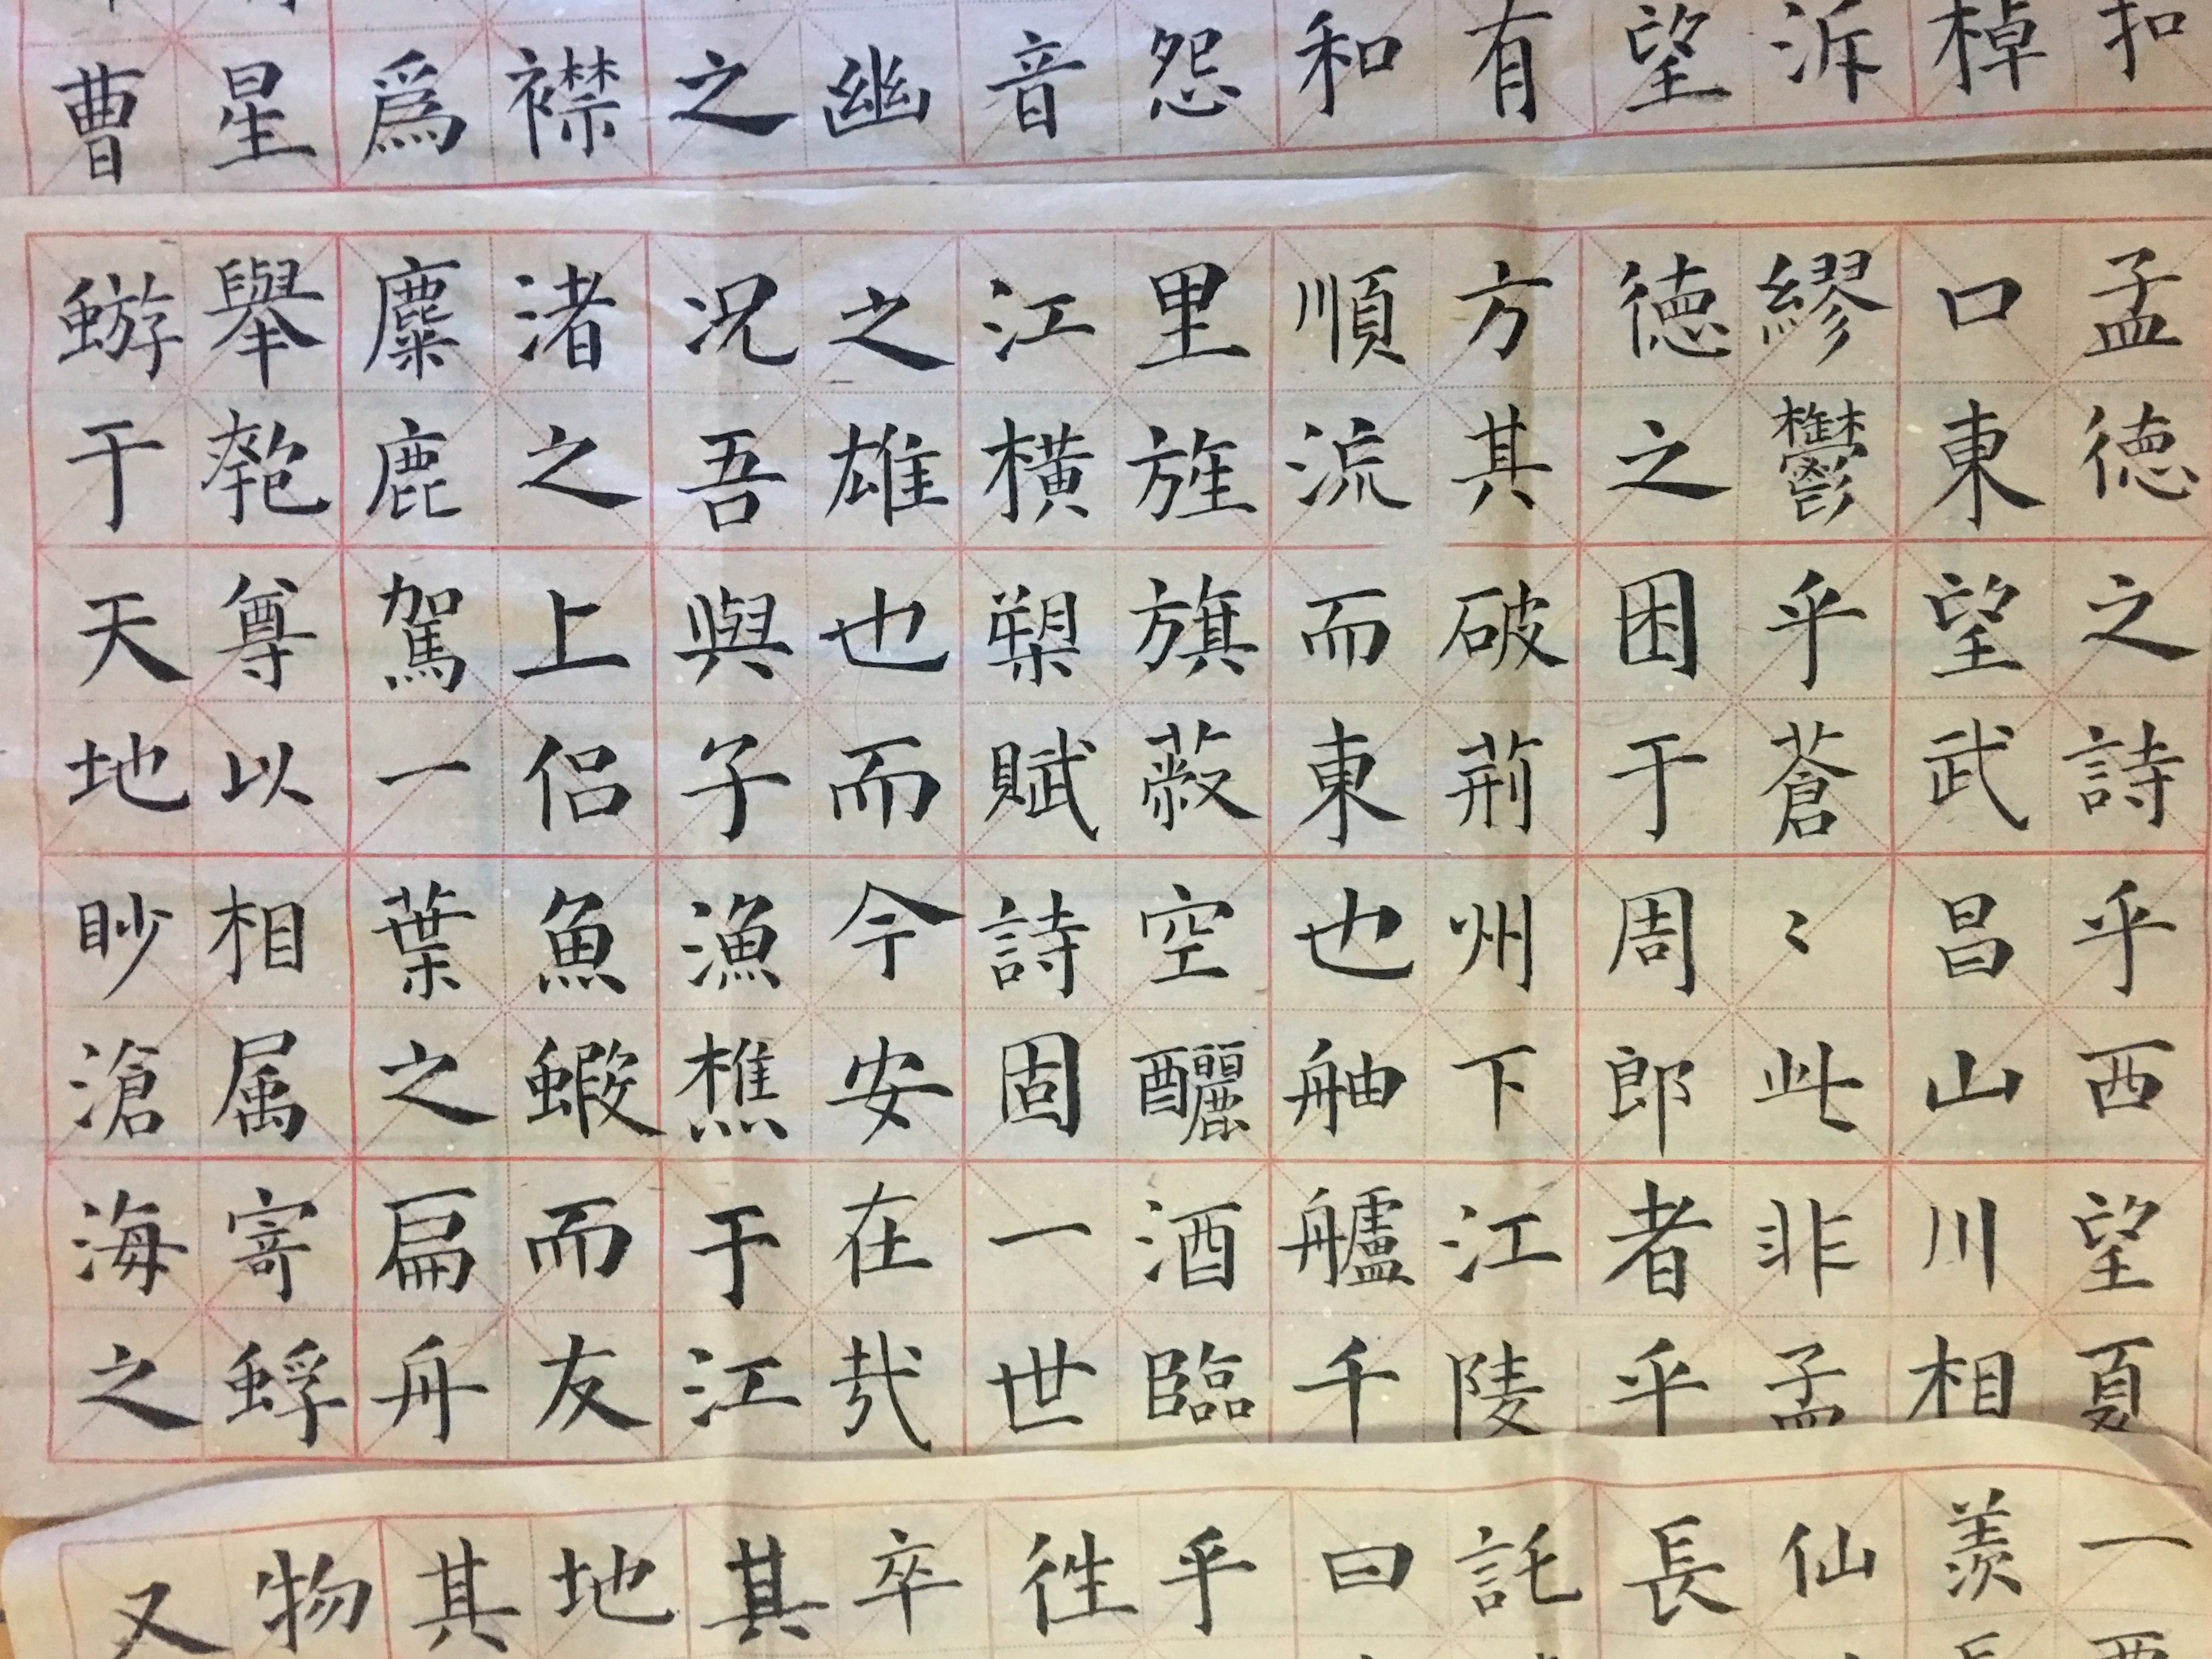 扣
棹
泝
望
有
和
怨
音
幽
之
襟
爲
星
曹
孟徳之詩乎西望夏
口東望武昌山川相
繆鬱乎蒼〻此非孟
徳之困于周郎者乎
方其破荊州下江陵
順流而東也舳艫千
里旌旗蔽空釃酒臨
江橫槊賦詩固一世
之雄也而今安在哉
况吾與子漁樵于江
渚之上侣魚蝦而友
麋鹿駕一葉之扁舟
舉匏尊以相属寄蜉
蝣于天地眇滄海之
一
羨
仙
長
託
曰
乎
徃
卒
其
地
其
物
又